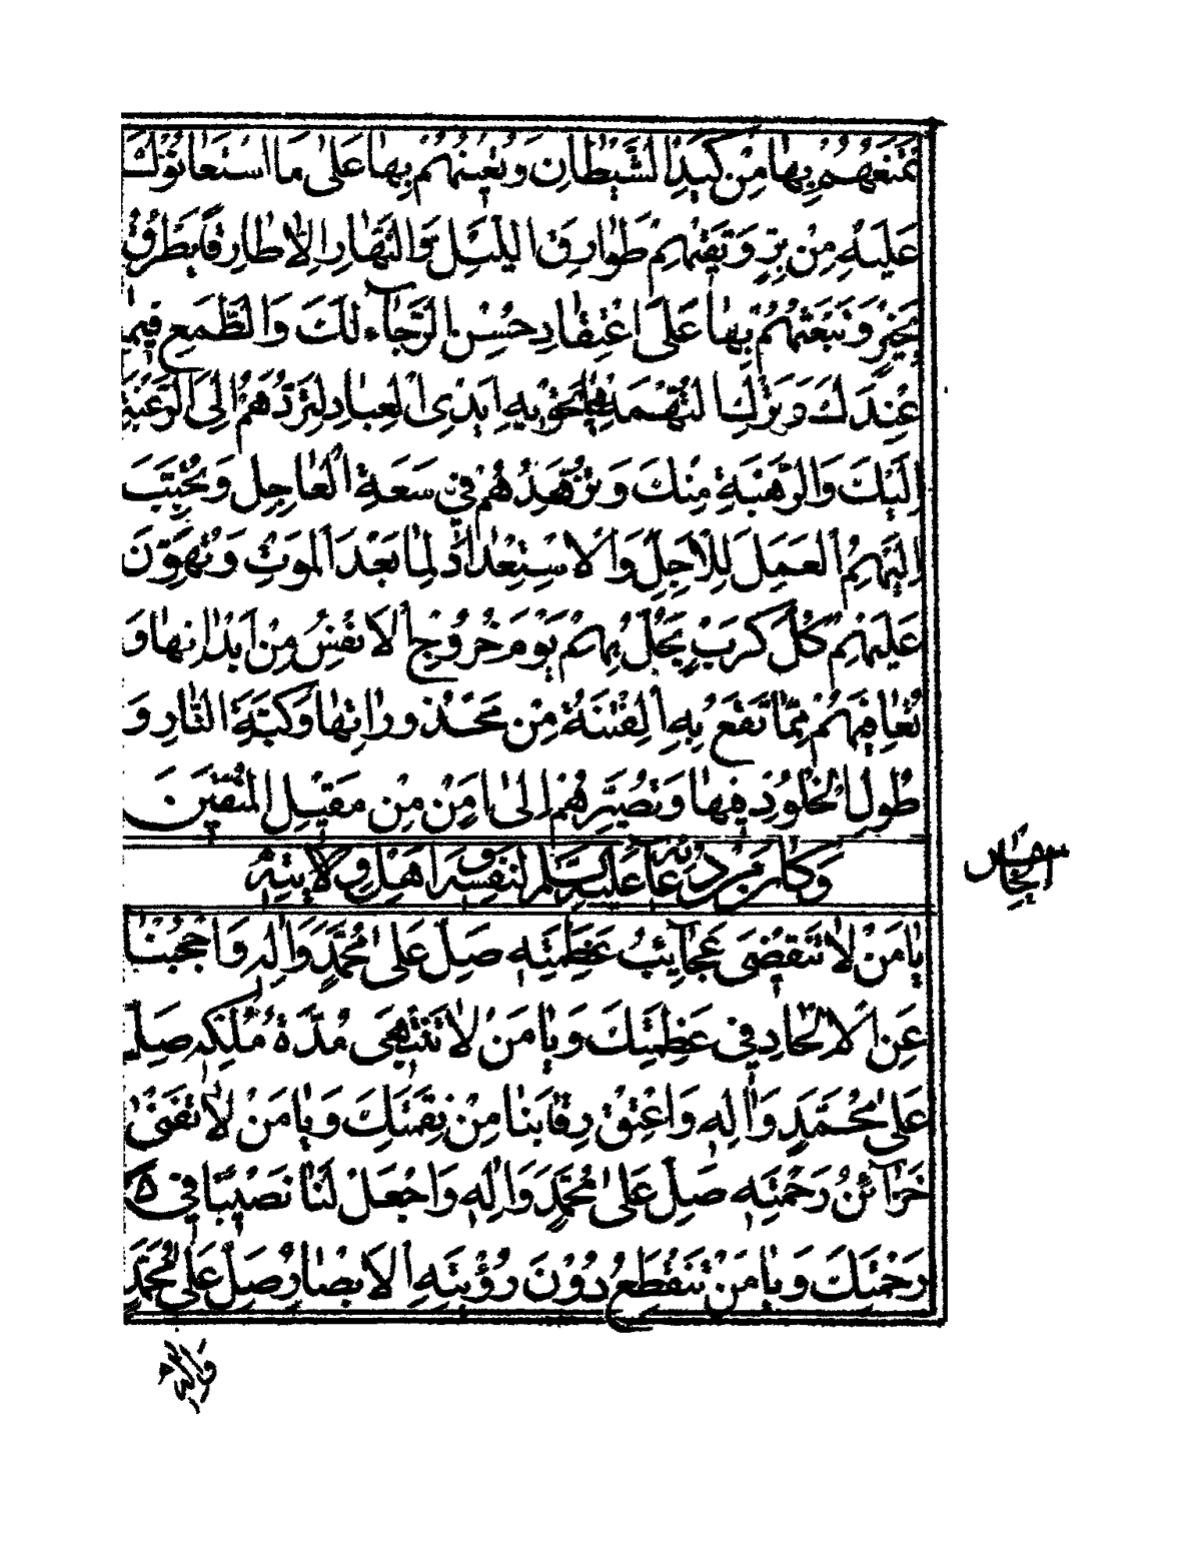 تَمْنَعُهُمْ بِهَا مِنْ كَيْدِ الشَّيْطَانِ وَتُعِينُهُمْ بِهَا عَلَىٰ مَا اسْتَعَانُوكَ
عَلَيْهِ مِنْ بِرٍّ وَتَقِيهِمْ طَوَارِقَ اللَّيْلِ وَالنَّهَارِ إِلَّا طَارِقًا يَطْرُقُ
بِخَيْرٍ وَتَبْعَثُهُمْ بِهَا عَلَى اعْتِقَادِ حُسْنِ الرَّجَآءِ لَكَ وَالطَّمَعِ فِيمَا
عِنْدَكَ وَتَرْكِ التُّهَمَةِ فِيمَا تَحْوِيهِ أَيْدِي الْعِبَادِ لِتَرُدَّهُمْ إِلَى الرَّغْبَةِ
إِلَيْكَ وَالرَّهْبَةِ مِنْكَ وَتُزَهِّدُهُمْ فِي سَعَةِ الْعَاجِلِ وَتُحَبِّبَ
إِلَيْهِمُ الْعَمَلَ لِلْآجِلِ وَالْاسْتِعْدَادَ لِمَا بَعْدَ الْمَوْتِ وَتُهَوِّنَ
عَلَيْهِمْ كُلَّ كَرْبٍ يَحُلُّ بِهِمْ يَوْمَ خُرُوجِ الْأَنْفُسِ مِنْ أَبْدَانِهَا وَ
تُعَافِيَهُمْ مِمَّا تَقَعُ بِهِ الْفِتْنَةُ مِنْ مَحْذُورَاتِهَا وَكَبَّةِ النَّارِ وَ
طُولِ الْخُلُودِ فِيهَا وَتُصَيِّرَهُمْ إِلَىٰ أَمْنٍ مِنْ مَقِيلِ الْمُتَّقِينَ
وَكَانَ مِنْ دُعَائِهِ عَلَيْهِ السَّلَامُ لِنَفْسِهِ وَأَهْلِ وَلَايَتِهِ
الخامس
يَا مَنْ لَا تَنْقَضِي عَجَآئِبُ عَظَمَتِهِ صَلِّ عَلَىٰ مُحَمَّدٍ وَآلِهِ وَاحْجُبْنَا
عَنِ الْإِلْحَادِ فِي عَظَمَتِكَ وَيَا مَنْ لَا تَنْتَهِي مُدَّةُ مُلْكِهِ صَلِّ
عَلَىٰ مُحَمَّدٍ وَآلِهِ وَاعْتِقْ رِقَابَنَا مِنْ نِقْمَتِكَ وَيَا مَنْ لَا تَفْنَىٰ
خَزَآئِنُ رَحْمَتِهِ صَلِّ عَلَىٰ مُحَمَّدٍ وَآلِهِ وَاجْعَلْ لَنَا نَصِيبًا فِي
رَحْمَتِكَ وَيَا مَنْ تَنْقَطِعُ دُونَ رُؤْيَتِهِ الْأَبْصَارُ صَلِّ عَلَىٰ مُحَمَّدٍ
وَآلِهِ